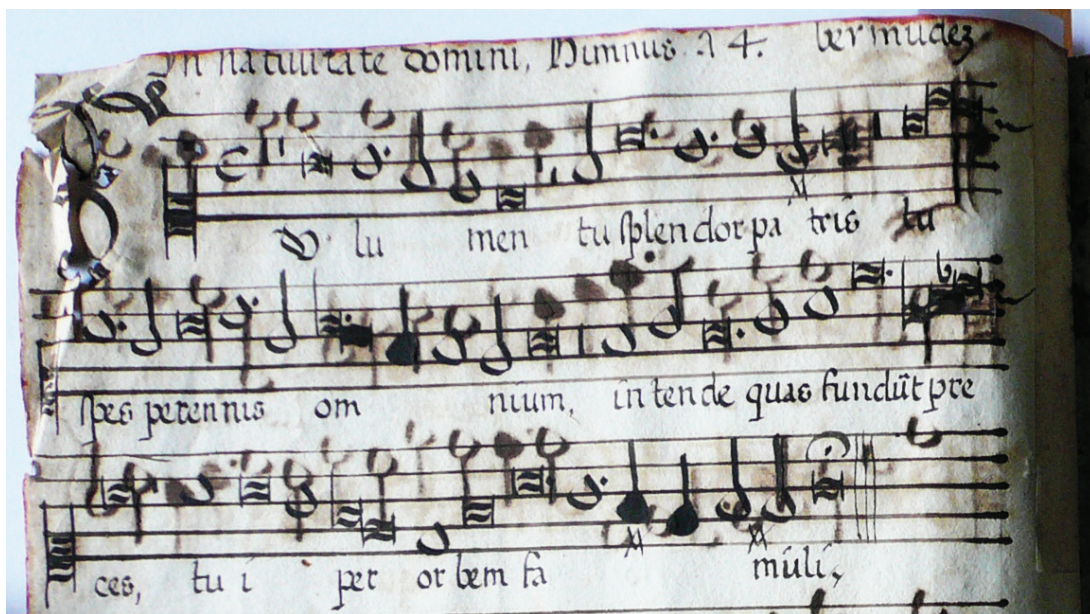 In natiuitate domini, Himnus. a 4. bermudez.
Tu lu men tu splendor pa tris tu
spes perennis om nium, in tende quas fundũt pre
ces, tu i per orbem fa muli,